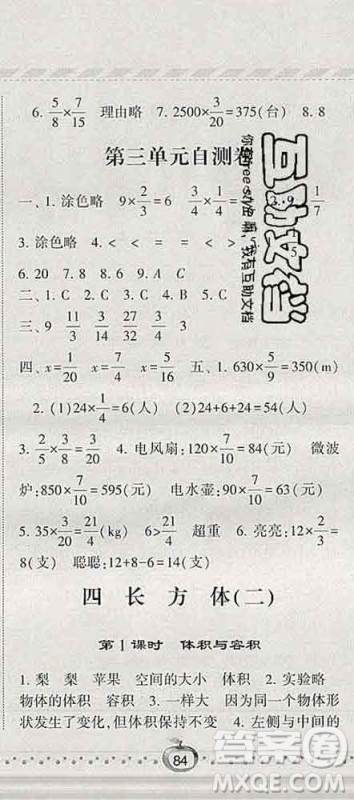 6. 5/8×7/15 理由略 7. 2500×3/20=375(台) 8. 8
第三单元自测卷
一、1. 涂色略 9×2/3=6 3/4×1/4= 2. 9
3. 涂色略 4. < < = < 5
6. 20 7. 8 8. 6 9. A C A
二、1. C 2. C 3. B 4.
三、9 11/3 27/4 27/32 3/4 3
四、x=1/20 x=7/4 x=5/6 五、1. 630×5/9=350(m)
2. (1)24×1/4=6(人) (2)24+6=30(人)
3. 2/5×3/8=3/20 4. 电风扇:120×7/10=84(元) 微波
炉:850×7/10=595(元) 电水壶:90×7/10=63(元)
5. 35×3/20=21/4(kg) 6>21/4 超重 6. 亮亮:12×2/3=
8(支) 聪聪:12+8-6=14(支)
四 长方体(二)
第1课时 体积与容积
1. 梨 梨 苹果 空间的大小 体积 2. 实验略
物体的体积 容积 3. 一样大 因为同一个物体形
状发生了变化,但体积保持不变 4. 左侧与中间的
84
互助文档
你有
free
我有互助文档
答案圈
MXQE.COM